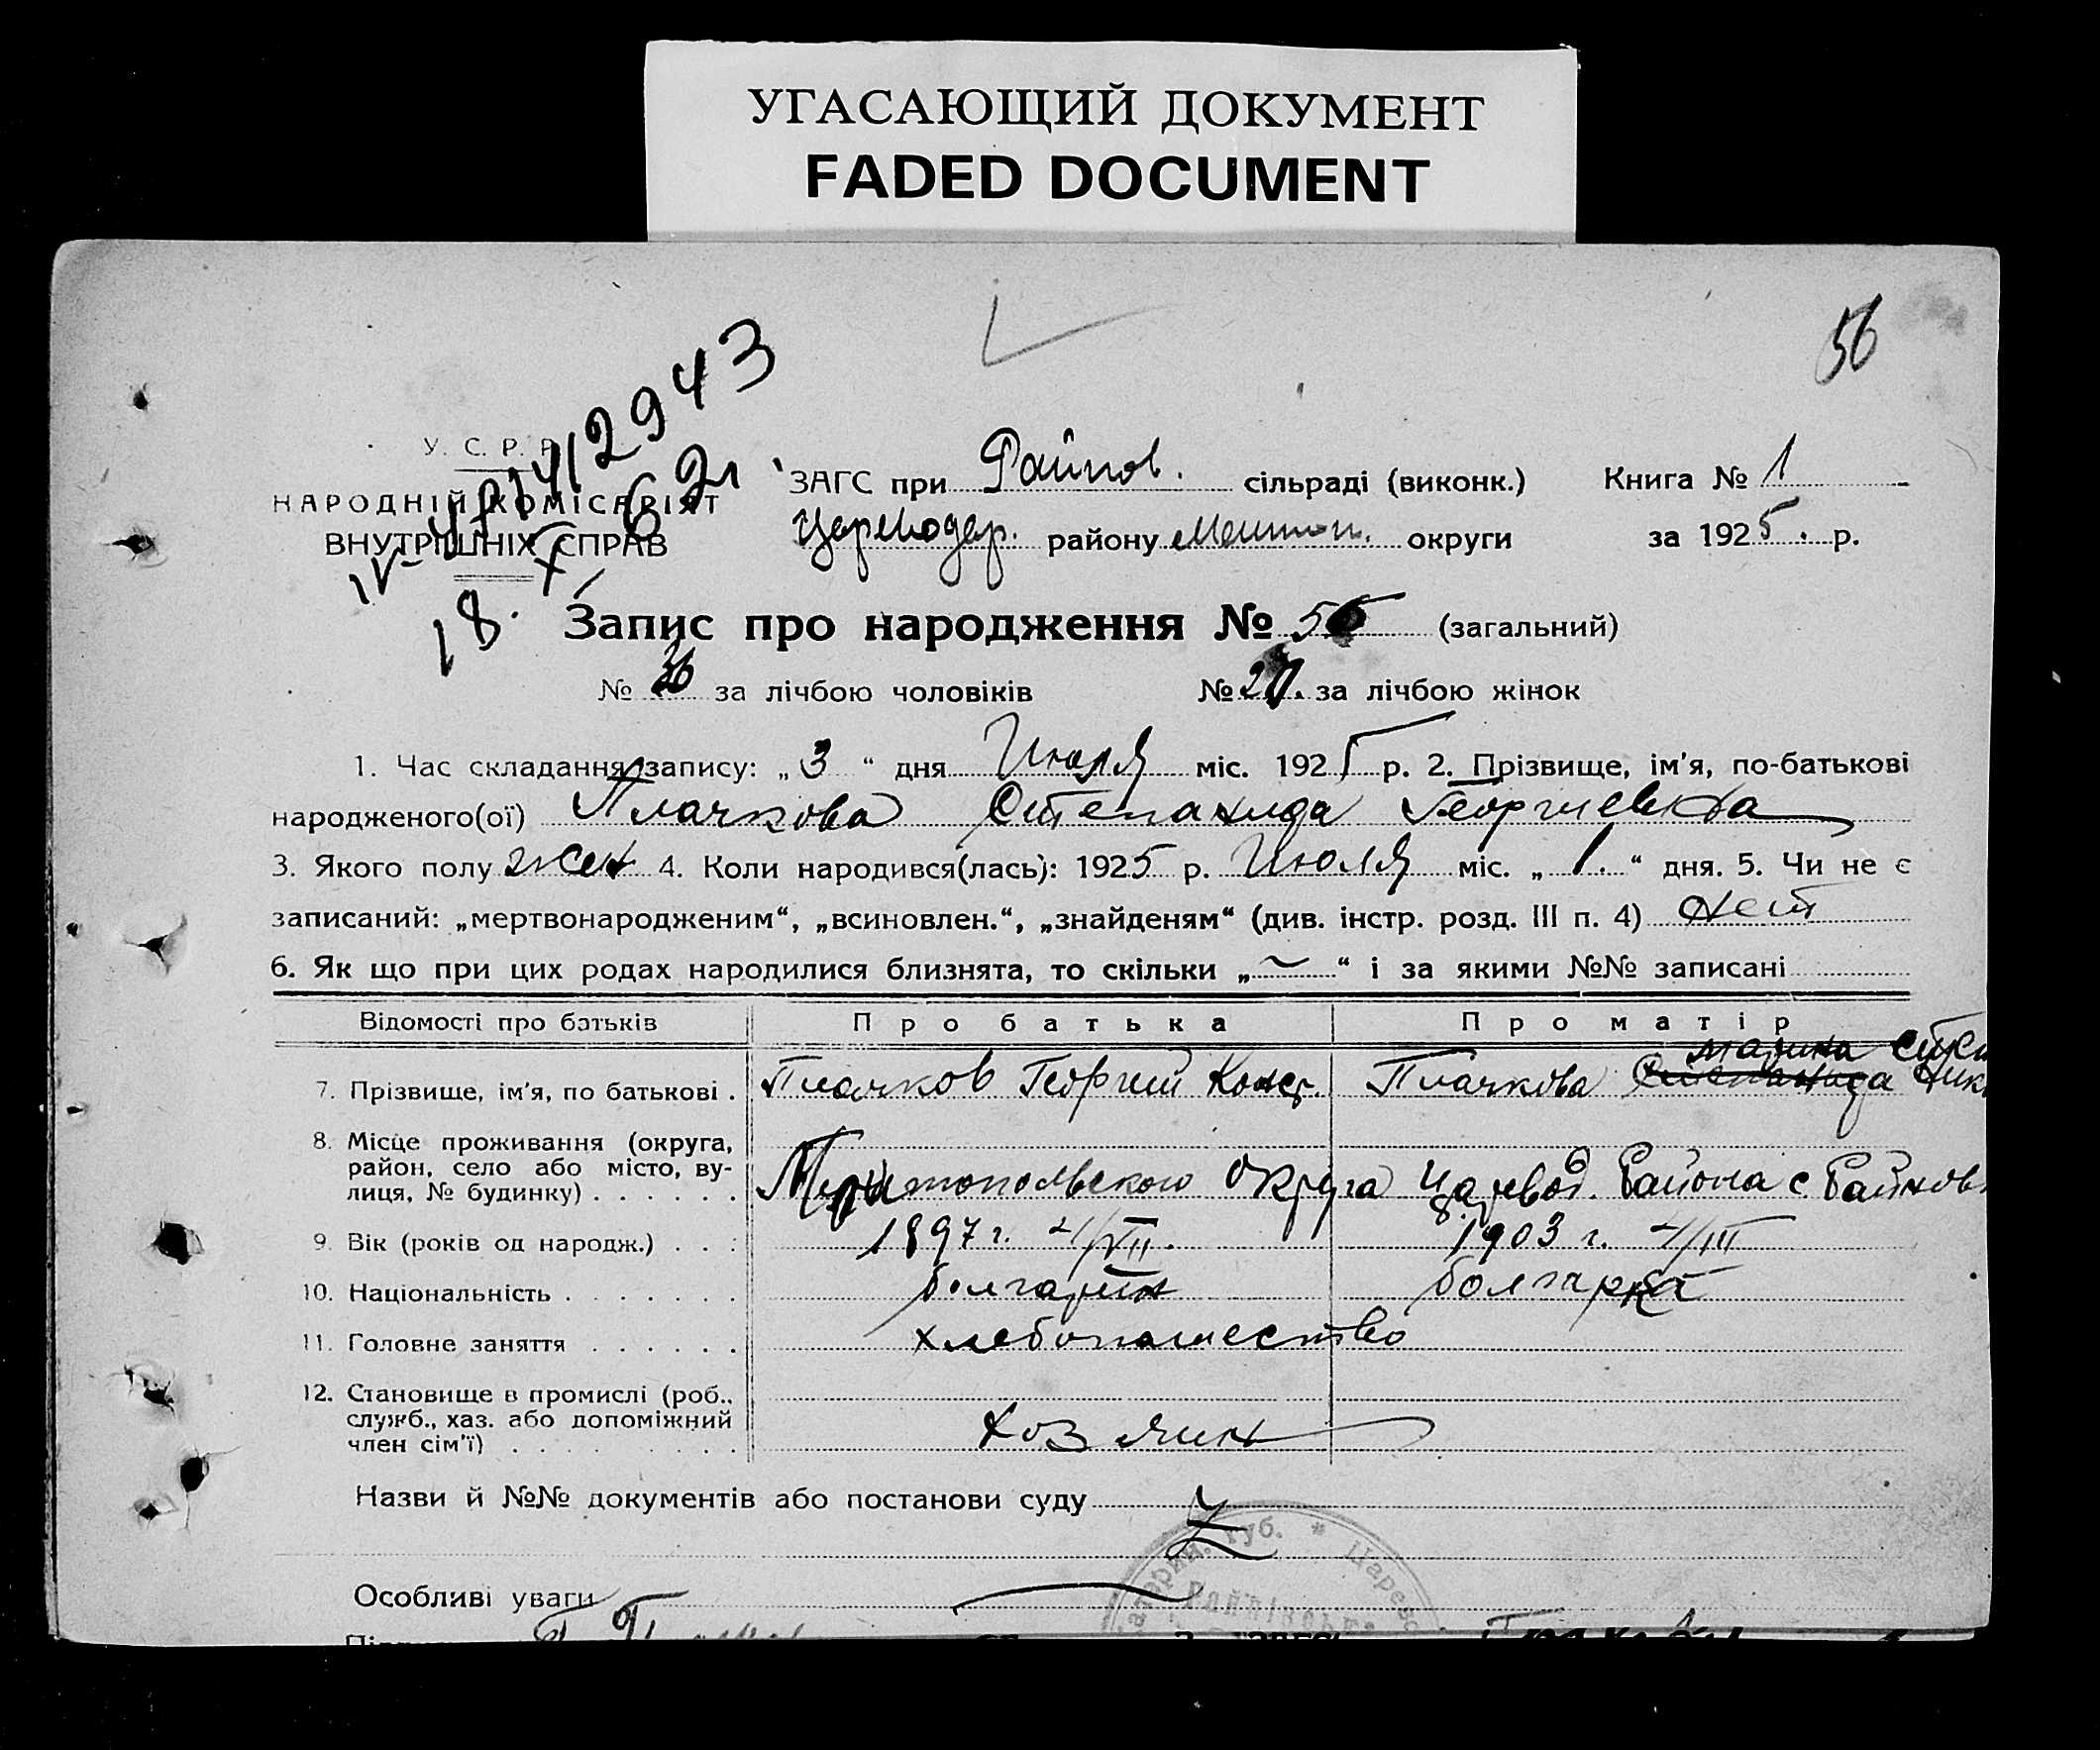 УГАСАЮЩИЙ ДОКУМЕНТ
FADED DOCUMENT
56
У. С. Р. Р.
НАРОДНІЙ КОМІСАРІЯТ
ВНУТРІШНІХ СПРАВ
412943
18.
ЗАГС при Райнов. сільраді (виконк.) Книга № 1
Цареводар. району Мелитоп. округи за 1925. р.
Запис про народження № 56 (загальний)
№ 36 за лічбою чоловіків № 20. за лічбою жінок
1. Час складання запису: „3“ дня Июля міс. 1925 р. 2. Прізвище, ім'я, по-батькові
народженого(ої) Плачкова Степанида Георгиевна
3. Якого полу жен 4. Коли народився(лась): 1925 р. Июля міс. „1.“ дня. 5. Чи не є
записаний: „мертвонародженим“, „всиновлен.“, „знайденям“ (див. інстр. розд. III п. 4) нет
6. Як що при цих родах народилися близнята, то скільки „~“ і за якими №№ записані
Відомості про батьків Про батька Про матір
7. Прізвище, ім'я, по батькові . Плачков Георгий Конс. Плачкова Степанида Марина Ник
8. Місце проживання (округа,
район, село або місто, ву-
лиця, № будинку) . . . . . . Мелитопольского Округа Царевод. Района с Райновк
9. Вік (років од народж.) . . : 1897 г. 4/VII. 1903 г. 4/III
10. Національність . . . . . . . болгарин болгарка
11. Головне заняття . . . . . . хлебопашество
12. Становище в промислі (роб.,
служб., хаз. або допоміжний
член сім'ї) . . . . . . . . . Хозяин
Назви й №№ документів або постанови суду Z
губ. * Царево
Особливі уваги